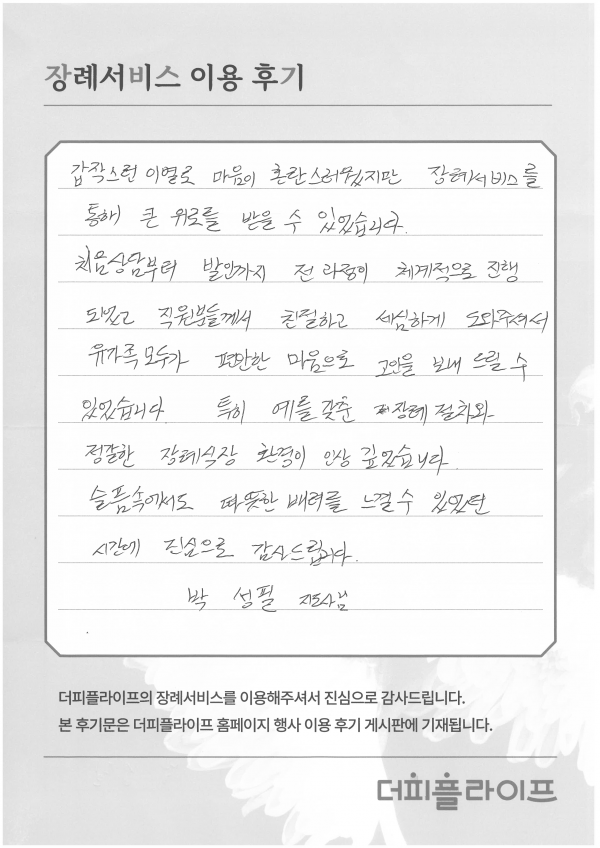 장례서비스 이용 후기
갑작스런 이열로 마음이 혼란스러웠지만 장례서비스를
통해 큰 위로를 받을 수 있었습니다.
처음상담부터 발인까지 전 과정이 체계적으로 진행
되었고 직원분들께서 친절하고 세심하게 도와주셔서
유가족모두가 편안한 마음으로 고인을 보내 드릴 수
있었습니다. 특히 예를 갖춘 장례 절차와
정갈한 장례식장 환경이 인상 깊었습니다.
슬픔속에서도 따뜻한 배려를 느낄수 있었던
시간에 진심으로 감사드립니다.
박 성필 지도사님
더피플라이프의 장례서비스를 이용해주셔서 진심으로 감사드립니다.
본 후기문은 더피플라이프 홈페이지 행사 이용 후기 게시판에 기재됩니다.
더피플라이프